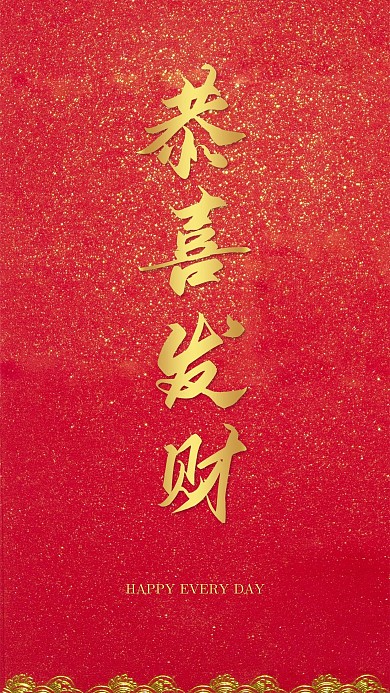 恭喜发财
HAPPY EVERY DAY